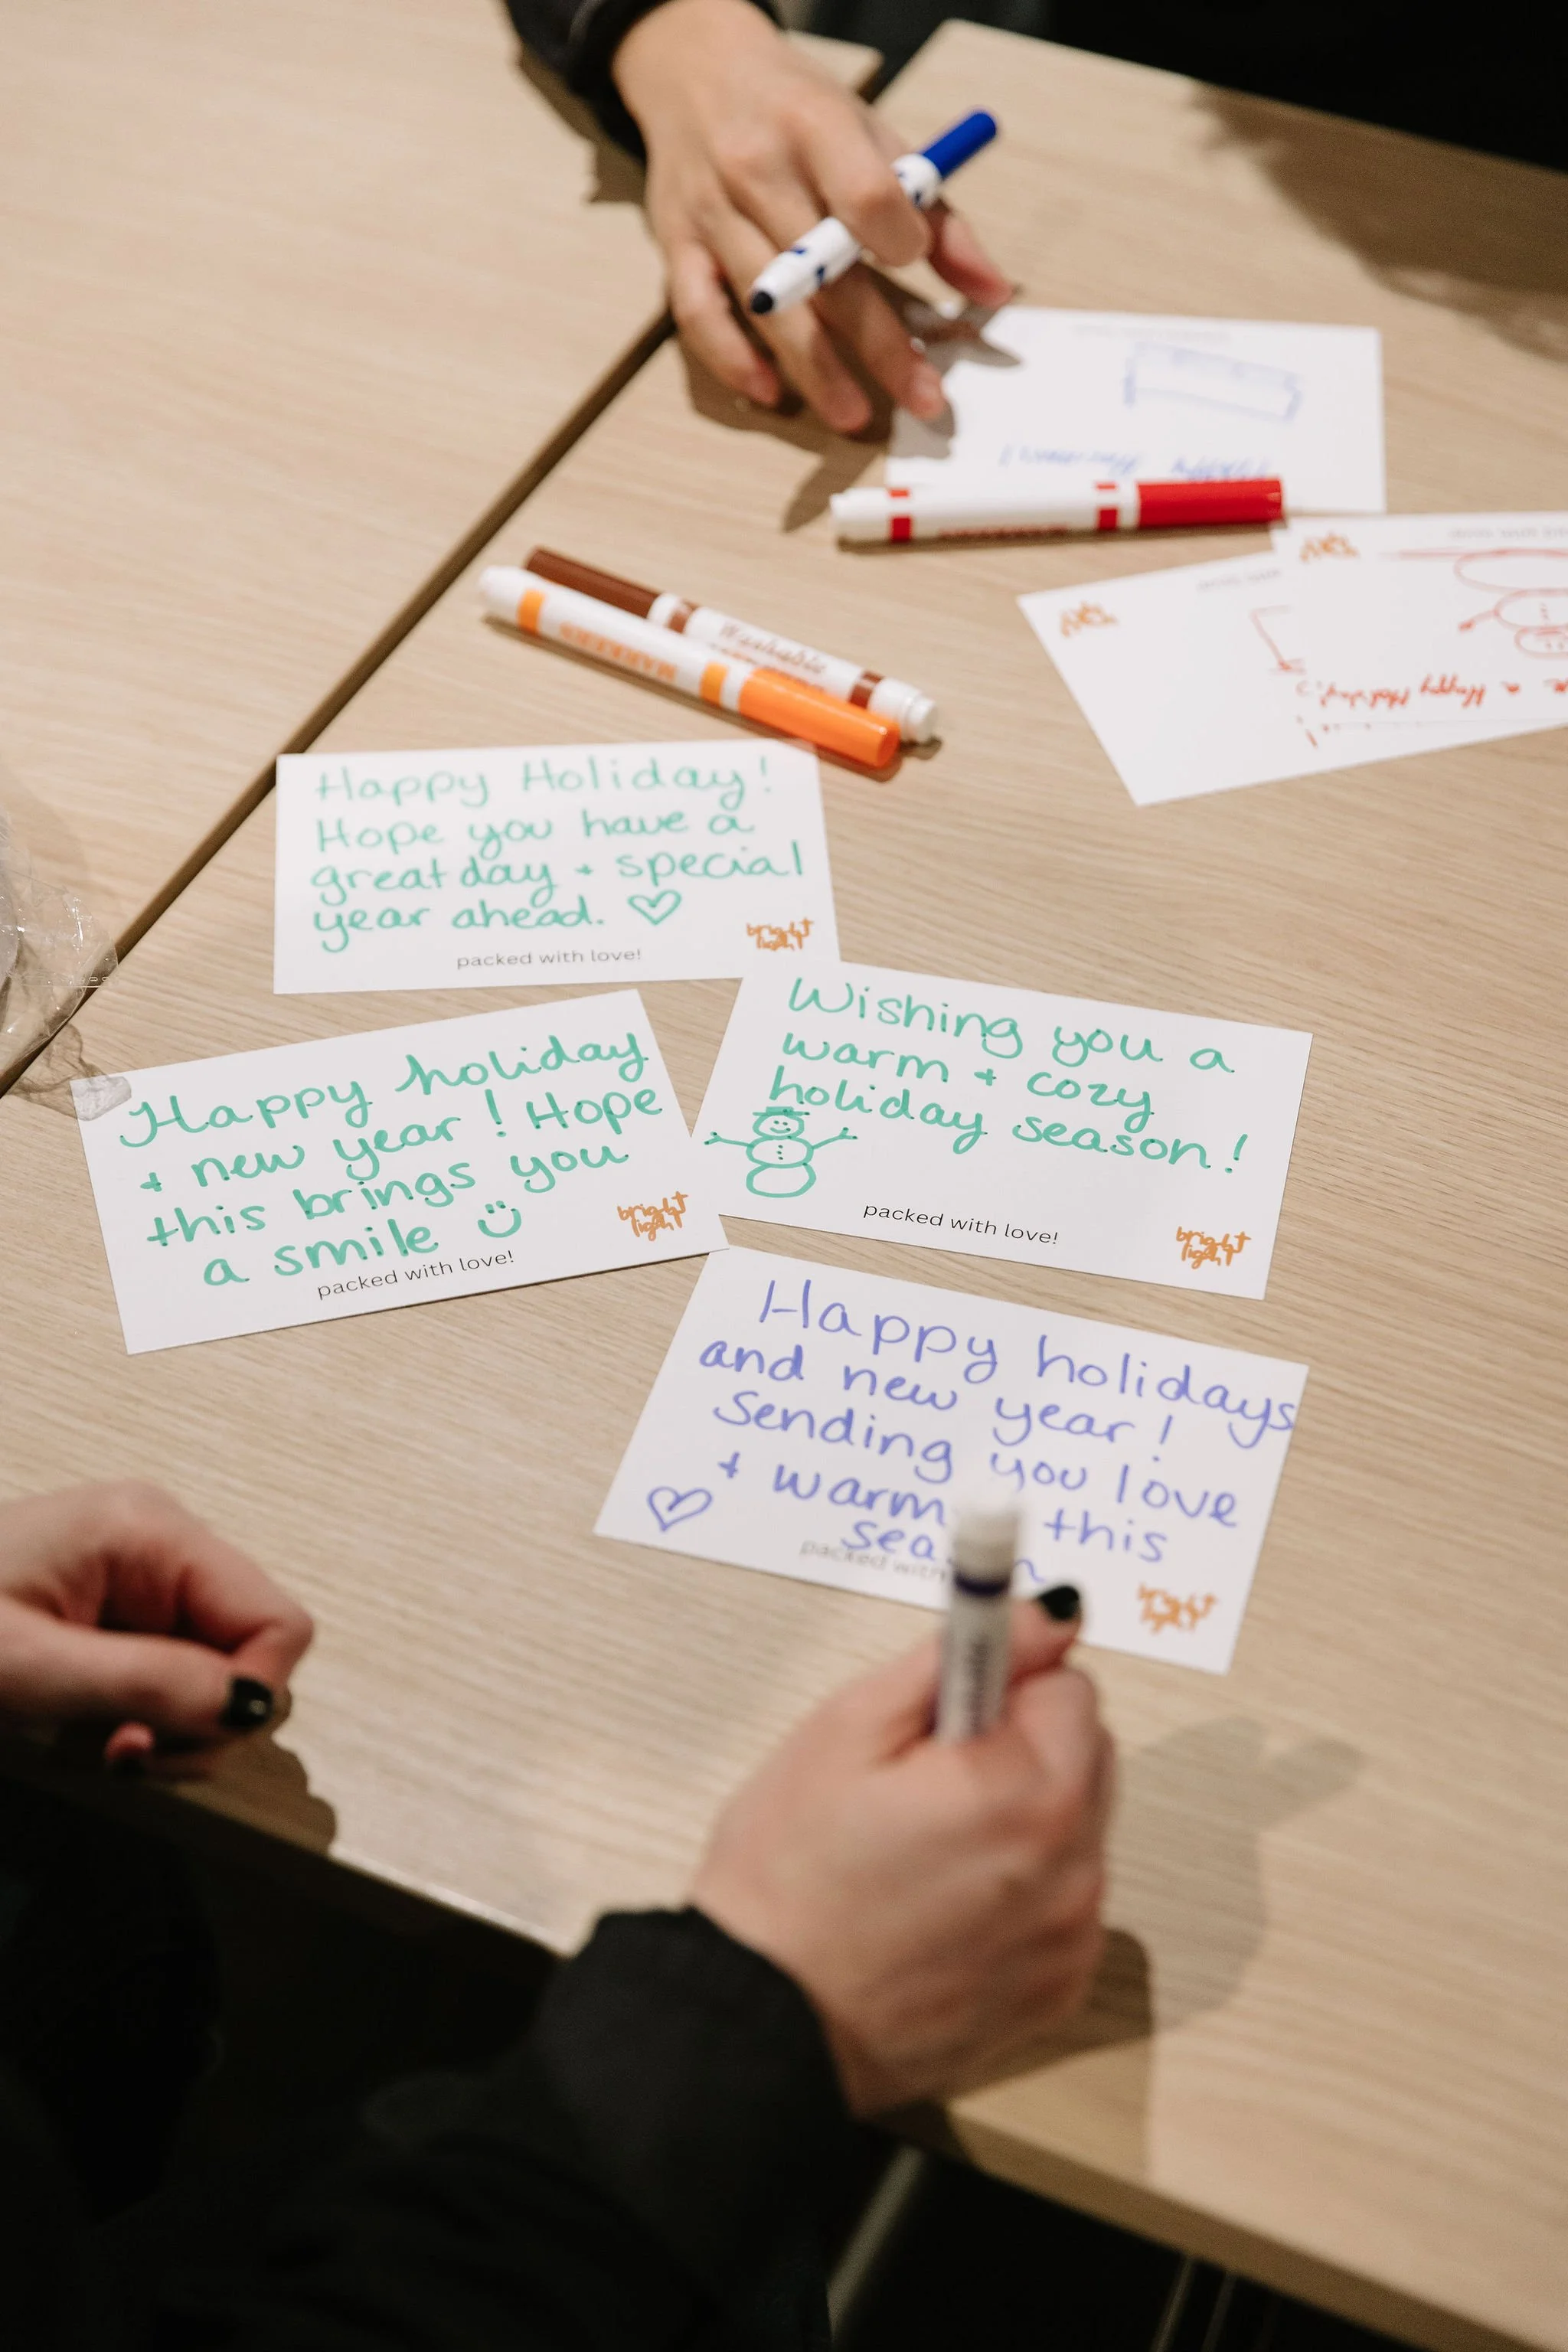 Happy Holiday!
Hope you have a
great day + special
year ahead.
packed with love!
bright
light
Happy holiday
+ new year! Hope
this brings you
a smile
packed with love!
bright
light
Wishing you a
warm + cozy
holiday season!
packed with love!
bright
light
Happy holidays
and new year!
Sending you love
+ warm this
packed with
bright
light
Washable
MARKERS
a Happy Holiday!